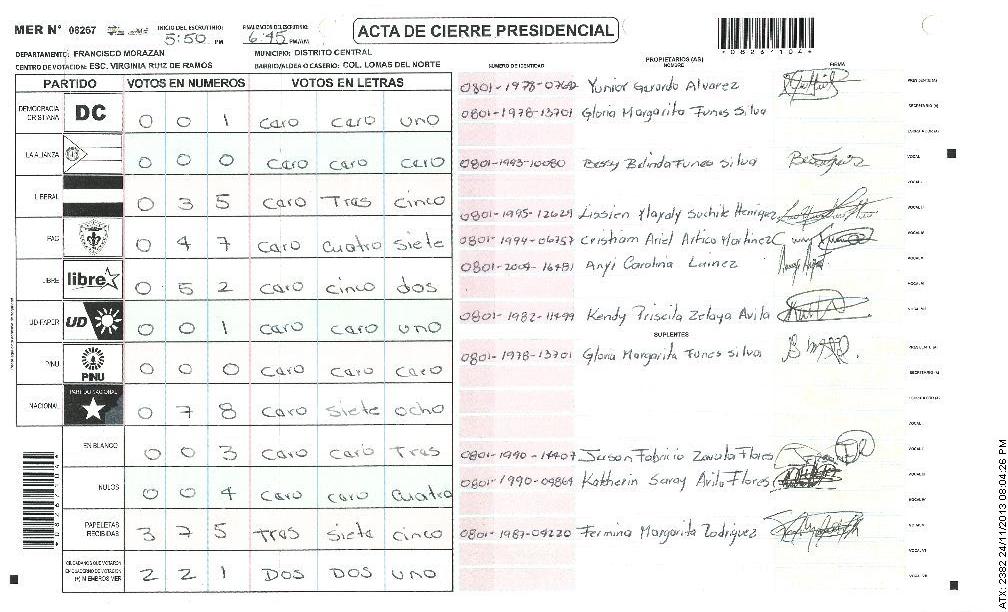 MER N° 08267 INICIO DEL ESCRUTINIO: 5:50 PM FINALIZACION DEL ESCRUTINIO: 6:45 PM/AM ACTA DE CIERRE PRESIDENCIAL
DEPARTAMENTO: FRANCISCO MORAZAN MUNICIPIO: DISTRITO CENTRAL
CENTRO DE VOTACION: ESC. VIRGINIA RUIZ DE RAMOS BARRIO/ALDEA O CASERIO: COL. LOMAS DEL NORTE
NUMERO DE IDENTIDAD PROPIETARIOS (AS) NOMBRE FIRMA
PARTIDO VOTOS EN NUMEROS VOTOS EN LETRAS
DEMOCRACIA CRISTIANA DC 0 0 1 caro caro uno
LA ALIANZA 0 0 0 caro caro cero
LIBERAL 0 3 5 caro Tras cinco
PAC 0 4 7 caro cuatro siete
LIBRE libre 0 5 2 caro cinco dos
UD FAPER UD 0 0 1 caro caro uno
PINU PINU 0 0 0 caro caro caro
NACIONAL PARTIDO NACIONAL 0 7 8 caro siete ocho
EN BLANCO 0 0 3 caro caro Tras
NULOS 0 0 4 caro caro cuatro
PAPELETAS RECIBIDAS 3 7 5 Tras siete cinco
CIUDADANOS QUE VOTARON 2 2 1 DOS DOS uno
(+) MIEMBROS MER
Yunior Gerardo Alvarez
0801-1978-13701 Gloria Margarita Funes Silva
0801-1993-10080 Bessy Belinda Funes Silva
0801-1995-12629 Suchite
0801-1994-06757 Cristham Ariel Artica Martinez
Anyi Carolina Lainez
0801-1982-11499 Kendy Priscila Zelaya Avila
SUPLENTES
0801-1978-13701 Gloria Margarita Funes Silva
0801-1990-14407 Fabricio Zavala Flores
0801-1990-09869 Katherin Saray Avila Flores
0801-1987-09220 Fermina Margarita Rodriguez
ATX: 2382 24/11/2013 08:04:26 PM